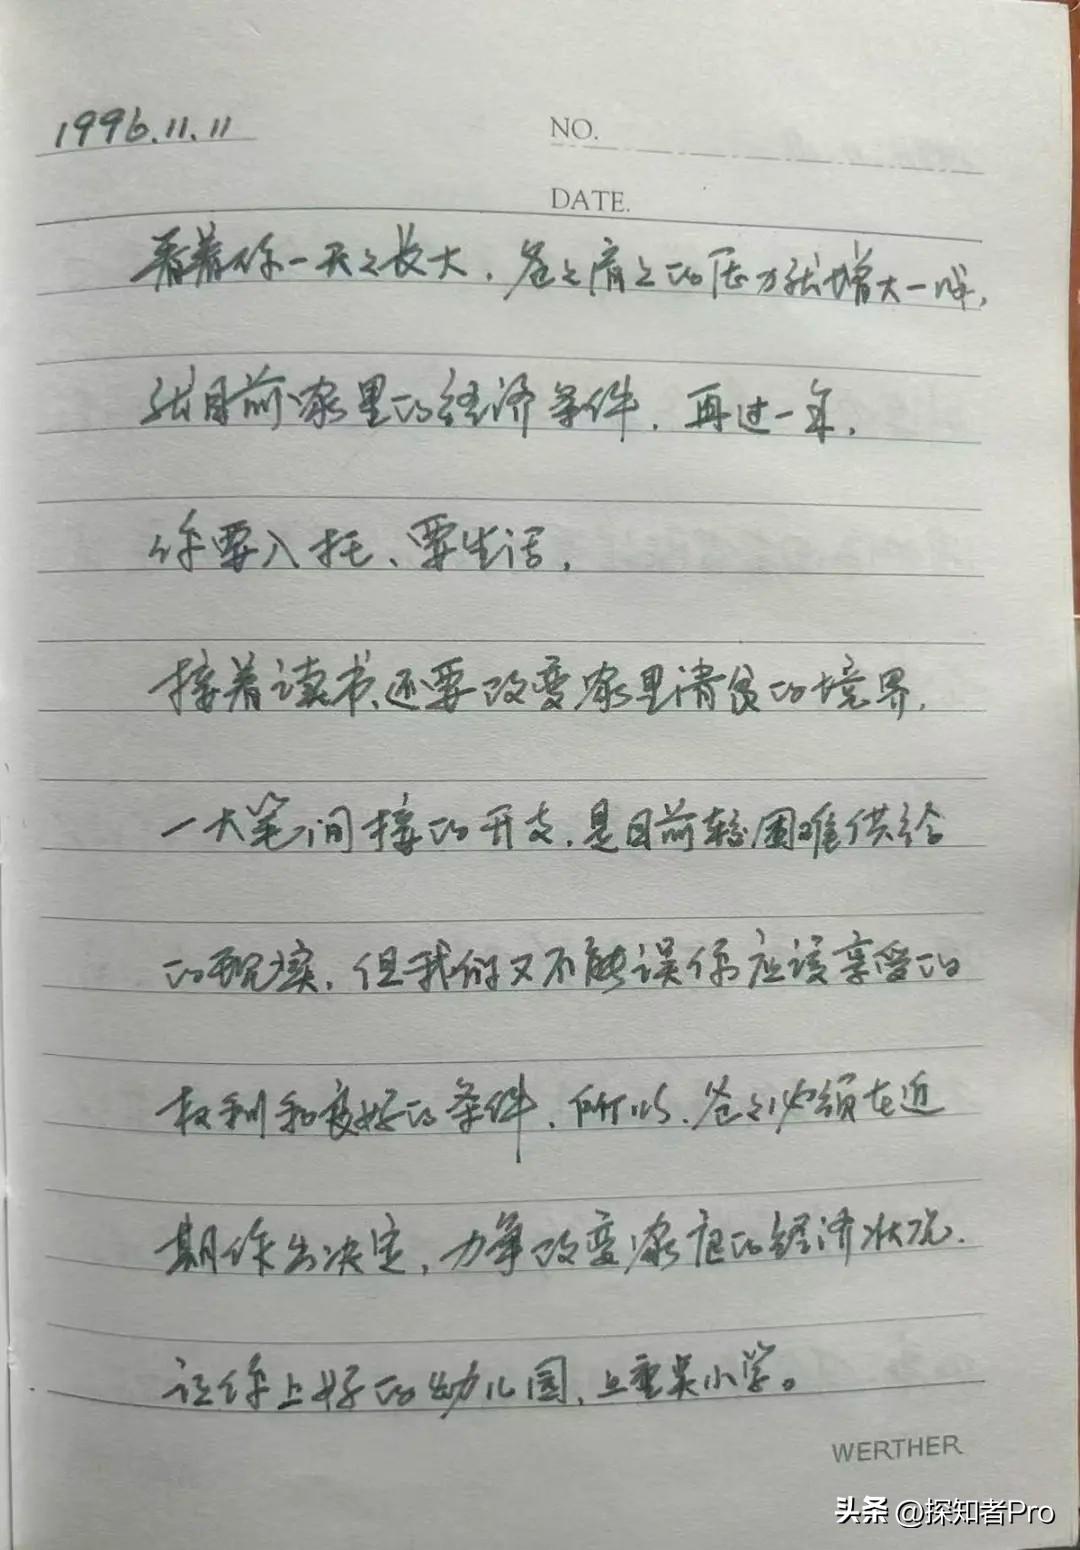 1996.11.11
NO.
DATE.
看着你一天天长大，爸爸肩上的压力就增大一成，
就目前家里的经济条件，再过一年，
你要入托、要生活，
接着读书、还要改变家里清贫的境界，
一大笔间接的开支，是目前较困难供给
的现实，但我们又不能误你应该享受的
权利和良好的条件，所以，爸爸必须在近
期作出决定，力争改变家庭的经济状况，
让你上好的幼儿园，上重点小学。
WERTHER
头条 @探知者Pro